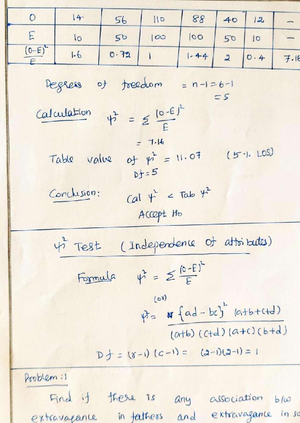 O 14 56 110 88 40 12 –
E 10 50 100 100 50 10 –
(O-E)²/E 1.6 0.72 1 1.44 2 0.4 7.16
Degrees of freedom = n-1 = 6-1
= 5
Calculation ψ² = Σ (O-E)²/E
= 7.16
Table value of ψ² = 11.07 (5% LOS)
Df = 5
Conclusion: Cal ψ² < Tab ψ²
Accept H₀
ψ² Test (Independence of attributes)
Formula ψ² = Σ (O-E)²/E
(or)
ψ² = {ad - bc}² (a+b+c+d) / (a+b) (c+d) (a+c) (b+d)
Df = (r-1) (c-1) = (2-1)(2-1) = 1
Problem:1
Find if there is any association b/w
extravagance in fathers and extravagance in